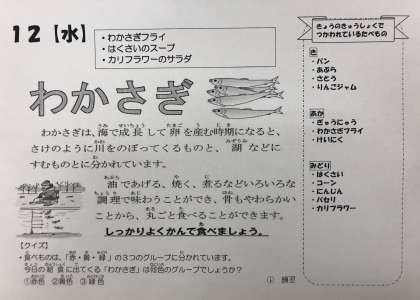 12【水】
・わかさぎフライ
・はくさいのスープ
・カリフラワーのサラダ
わかさぎ
わかさぎは、海で成長して卵を産む時期になると、
さけのように川をのぼってくるものと、湖などに
すむものとに分かれています。
油であげる、焼く、煮るなどいろいろな
調理で味わうことができ、骨もやわらかい
ことから、丸ごと食べることができます。
しっかりよくかんで食べましょう。
【クイズ】
・食べものは、「赤・黄・緑」の3つのグループに分かれています。
今日の給食に出てくる「わかさぎ」は何色のグループでしょうか？
①赤色 ②黄色 ③緑色
きょうのきゅうしょくで
つかわれているたべもの
き
・パン
・あぶら
・さとう
・りんごジャム
あか
・ぎゅうにゅう
・わかさぎフライ
・けいにく
みどり
・はくさい
・コーン
・にんじん
・パセリ
・カリフラワー